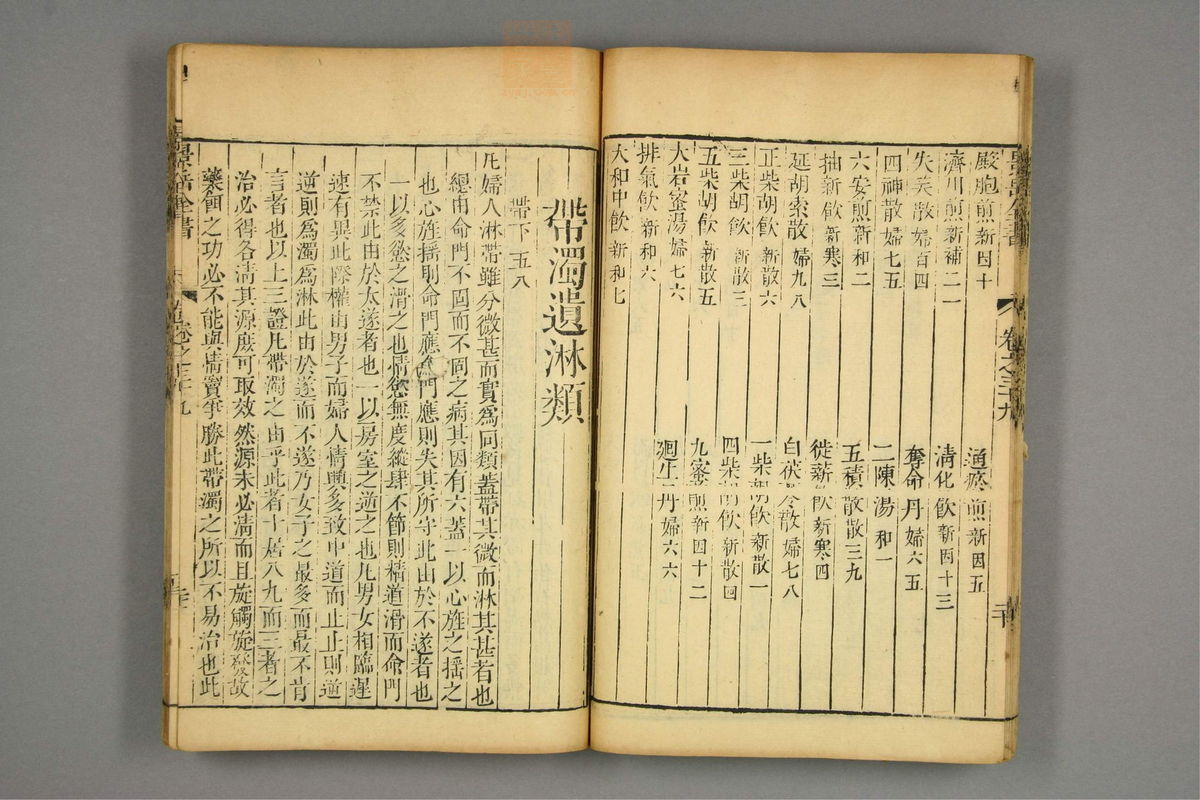 殿胞煎新因十
通瘀煎新因五
濟川煎新補二一
清化飲新因十三
失笑散婦百四
奪命丹婦六五
四神散婦七五
二陳湯和一
六安煎新和二
五積散散三九
抽薪飲新寒三
徙薪飲新寒四
延胡索散婦九八
白茯苓散婦七八
正柴胡飲新散六
一柴胡飲新散一
三柴胡飲新散三
四柴胡飲新散四
五柴胡飲新散五
九蜜煎新四十二
大岩蜜湯婦七六
廻生丹婦六六
排氣飲新和六
大和中飲新和七
帶濁遺淋類
帶下五八
凡婦人淋帶雖分微甚而實為同類蓋帶其微而淋其甚者也
總由命門不固而不固之病其因有六蓋一以心旌之搖之
也心旌搖則命門應命門應則失其所守此由於不遂者也
一以多慾之滑之也情慾無度縱肆不節則精道滑而命門
不禁此由於太遂者也一以房室之逆之也凡男女相臨遲
速有異此際權由男子而婦人情興多致中道而止止則逆
逆則為濁為淋此由於遂而不遂乃女子之最多而最不肯
言者也以上三證凡帶濁之由乎此者十居八九而三者之
治必得各清其源庶可取效然源未必清而且旋觸旋發故
藥餌之功必不能與情竇爭勝此帶濁之所以不易治也此
景岳全書
卷之三十九